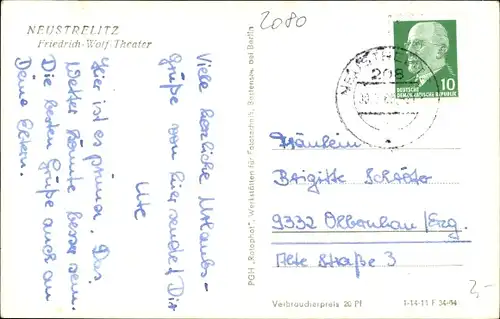 NEUSTRELITZ
Friedrich-Wolf-Theater
2080
Viele herzliche Urlaubs-
grüße von hier sendet Dir
Ute
Hier ist es prima. Das
Wetter könnte besser sein.
Die besten Grüße auch an
Deine Eltern.
PGH „Rotophot“, Werkstätten für Fototechnik, Bestensee bei Berlin
DEUTSCHE
DEMOKRATISCHE REPUBLIK
10
NEUSTREL
208
Fräulein
Brigitte Schröter
9332 Olbernhau/Erzg.
Alte Straße 3
Verbraucherpreis 20 Pf
I-14-11 F 34/64
2,-